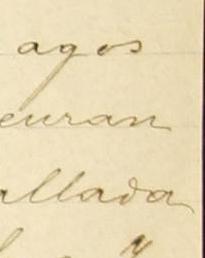 agos
euran
allada